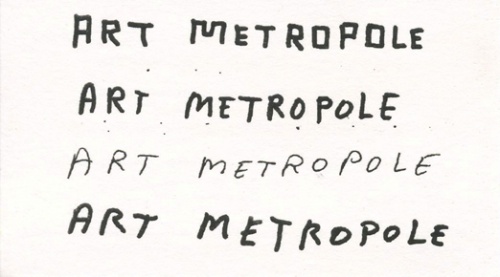 ART METROPOLE
ART METROPOLE
ART METROPOLE
ART METROPOLE